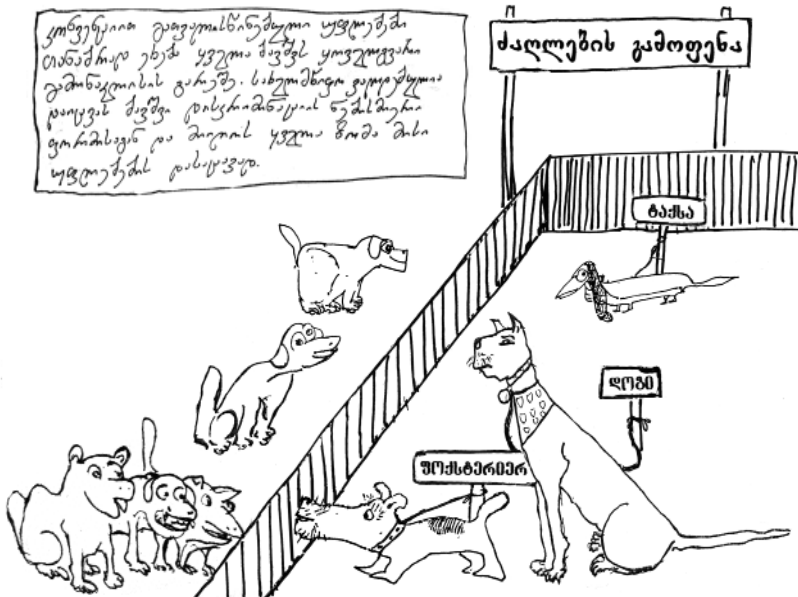 კონვენციით გათვალისწინებული უფლებები
თანაბრად ეხება ყველა ბავშვს ყოველგვარი
გამონაკლისის გარეშე. სახელმწიფო ვალდებულია
დაიცვას ბავშვი დისკრიმინაციის ნებისმიერი
ფორმისაგან და მიიღოს ყველა ზომა მისი
უფლებების დასაცავად.
ძაღლების გამოფენა
ტაქსა
დოგი
ფოქსტერიერ